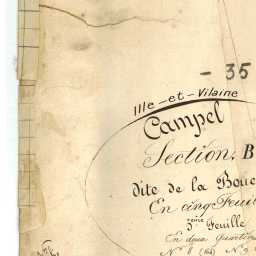 - 35
Ille-et-Vilaine
Campel
Section, B
dite de la Bouë
En cinq Feuil
3ème Feuille
En deux
N° 8 N° 9